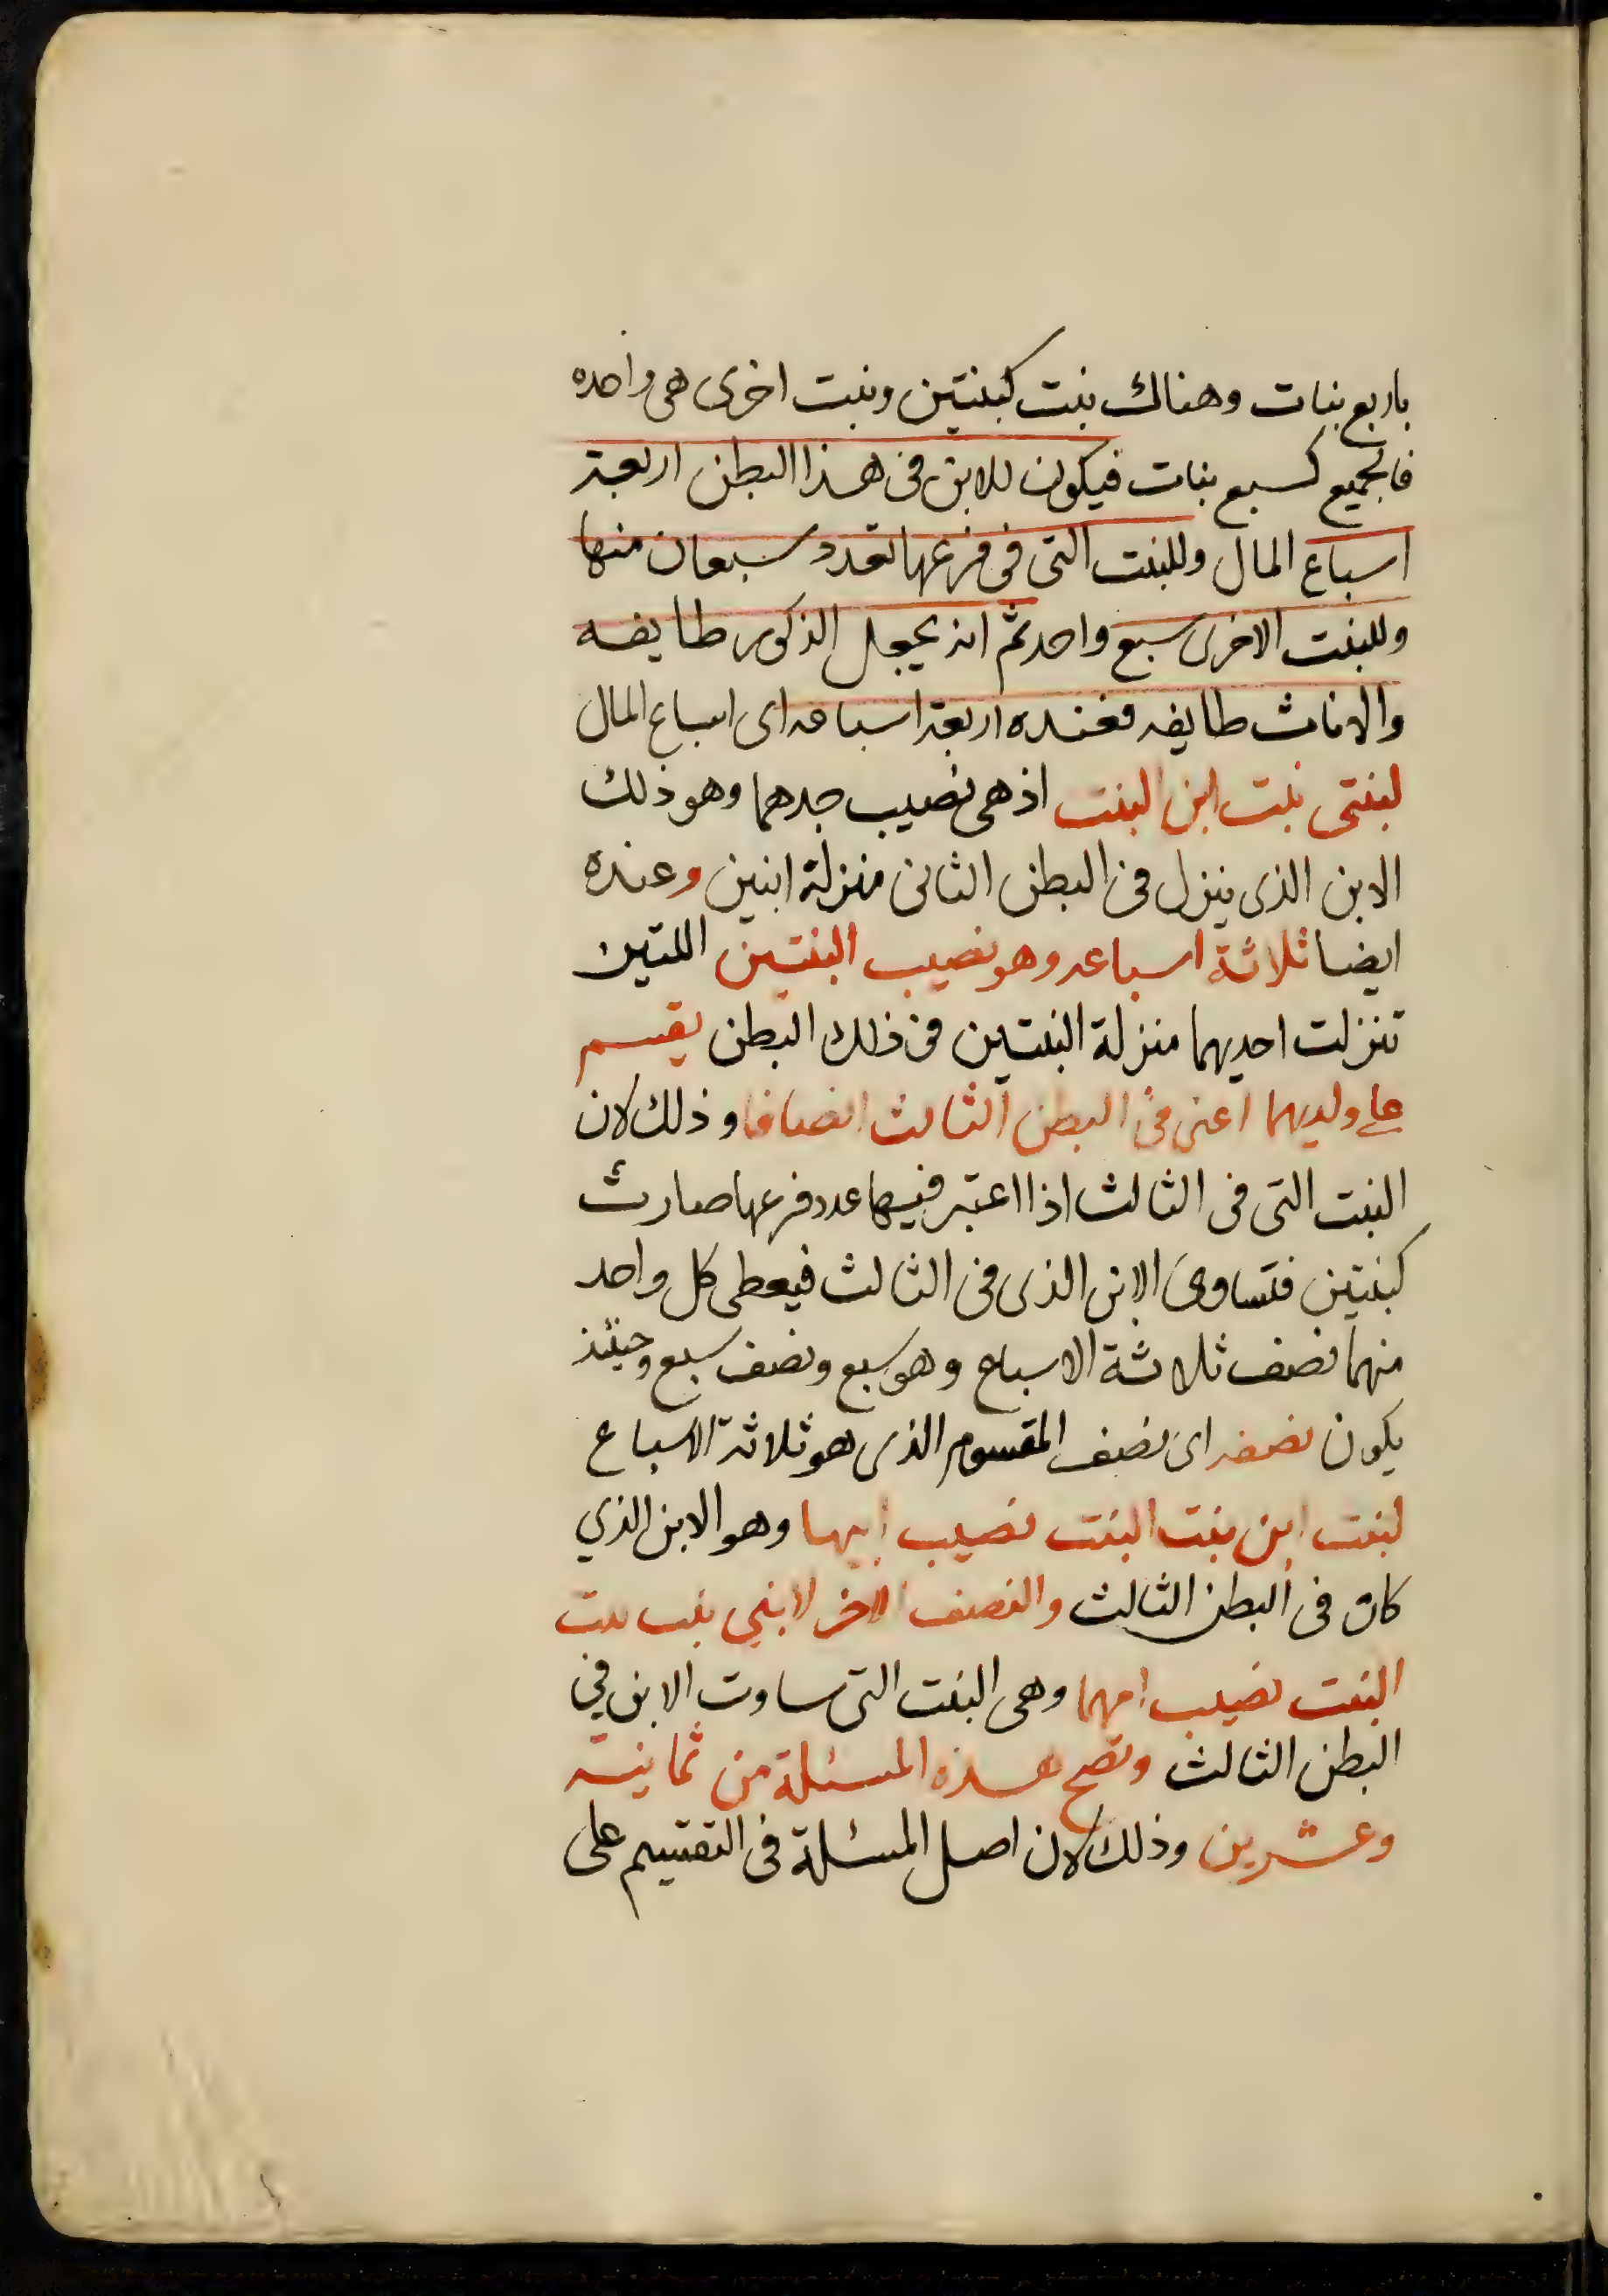 باربع بنات وهناك بنت كبنتين وبنت اخرى هى واحده
فالجميع كسبع بنات فيكون للابن فى هذا البطن اربعة
اسباع المال وللبنت التى فى فرعها تعدد سبعان منها
وللبنت الاخرى سبع واحد ثم انه يجعل الذكور طايفه
والاناث طايفه فعنده اربعة اسباعه اى اسباع المال
لبنتى بنت ابن البنت اذ هى نصيب جدهما وهو ذلك
الابن الذى ينزل فى البطن الثانى منزلة ابنين وعنده
ايضا ثلاثة اسباعه وهو نصيب البنتين اللتين
تنزلت احديهما منزلة البنتين فى ذلك البطن يقسم
على ولديهما اعنى فى البطن الثالث انصافا وذلك لان
البنت التى فى الثالث اذا اعتبر فيها عدد فرعها صارت
كبنتين فتساوى الابن الذى فى الثالث فيعطى كل واحد
منهما نصف ثلاثة الاسباع وهو سبع ونصف سبع وحينئذ
يكون نصفه اى نصف المقسوم الذى هو ثلاثة الاسباع
لبنت ابن بنت البنت نصيب ابيها وهو الابن الذي
كان فى البطن الثالث والنصف الاخر لابني بنت بنت
البنت نصيب امهما وهى البنت التى ساوت الابن في
البطن الثالث وتصح هذه المسئلة من ثمانية
وعشرين وذلك لان اصل المسئلة فى التقسيم على